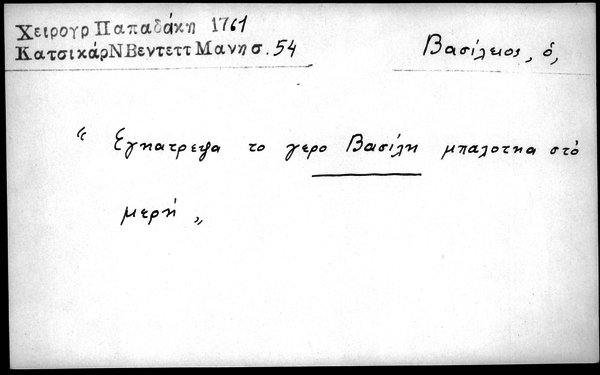 Χειρογρ Παπαδάκη 1761
ΚατσικάρΝΒεντεττΜανησ.54
Βασίλειος, ὁ,
“ το γερο Βασίλη μπαλοτηα στό
μερή „